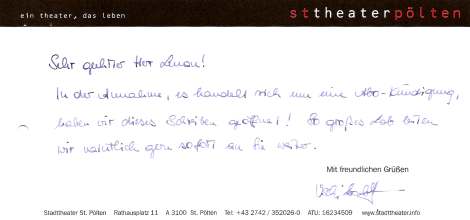 ein theater, das leben
sttheaterpölten
Sehr geehrter Herr !
In der Annahme, es handelt sich um eine Abo-Kündigung,
haben wir dieses Schreiben geöffnet! So großes Lob leiten
wir natürlich gern sofort an Sie weiter.
Mit freundlichen Grüßen
Stadttheater St. Pölten Rathausplatz 11 A 3100 St. Pölten Tel: +43 2742 / 352026-0 ATU: 16234509 www.stadttheater.info